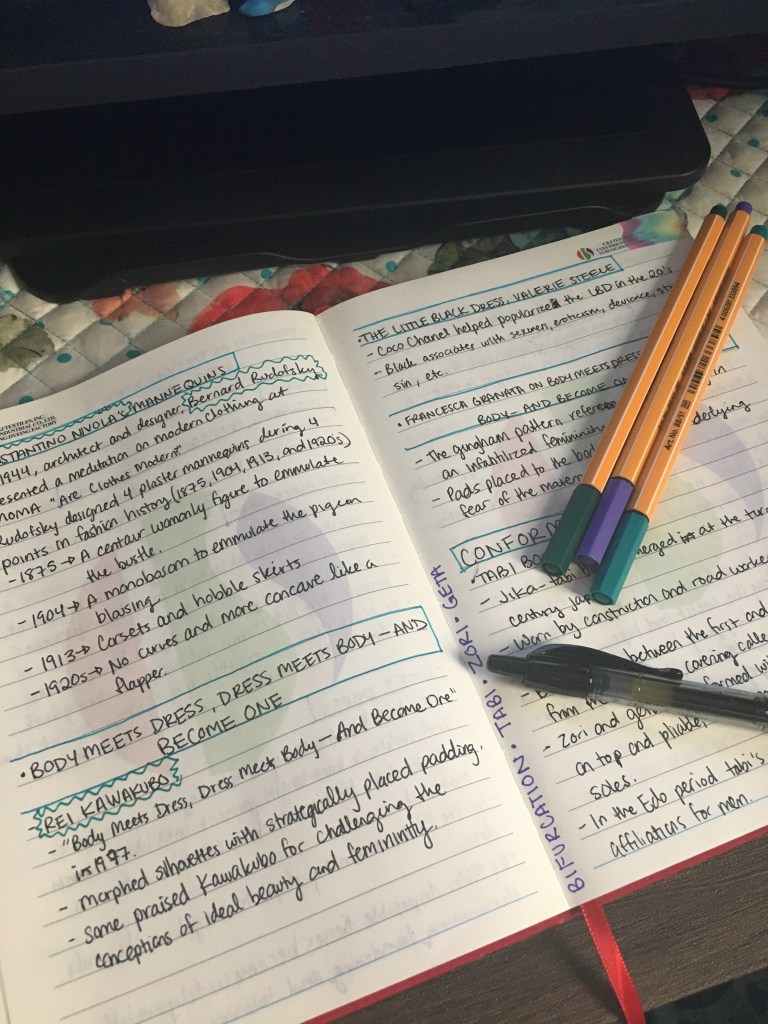 STANTINO NIVOLA'S MANNEQUINS
1944, architect and designer, Bernard Rudofsky,
esented a meditation on modern clothing at
MOMA "Are Clothes Modern"
Rudofsky designed 4 plaster mannequins during 4
points in fashion history (1875, 1904, 1913, and 1920's)
- 1875 → A centaur womanly figure to emmulate
the bustle.
- 1904 → A monobosom to emmulate the pigeon
blousing
- 1913 → Corsets and hobble skirts
- 1920s → No curves and more concave like a
flapper.
• BODY MEETS DRESS, DRESS MEETS BODY — AND
BECOME ONE
REI KAWAKUBO
- "Body Meets Dress, Dress meets Body — And Become One"
in 1997.
- morphed silhouettes with strategically placed padding.
- some praised Kawakubo for challenging the
conceptions of ideal beauty and femininity.
• THE LITTLE BLACK DRESS, VALERIE STEELE
- Coco Chanel helped popularize the LBD in the 20's
- Black associates with sexiness, eroticism, deviance,
sin, etc.
• FRANCESCA GRANATA ON BODY MEETS DRESS
BODY — AND BECOME
- The gingham pattern in
an infantilized femininity
- Pads placed to the underlying
fear of the
CONFOR
• TABI BO
- Jika-tabi emerged at the tur
century jap
- Worn by construction and road worke
between the first and
from the covering calle
- Zori and formed wi
on top and pliable,
soles.
- In the Edo period tabi's
affiliations for men.
BIFURCATION • TABI • ZORI • GETA
Art. No. 88/51